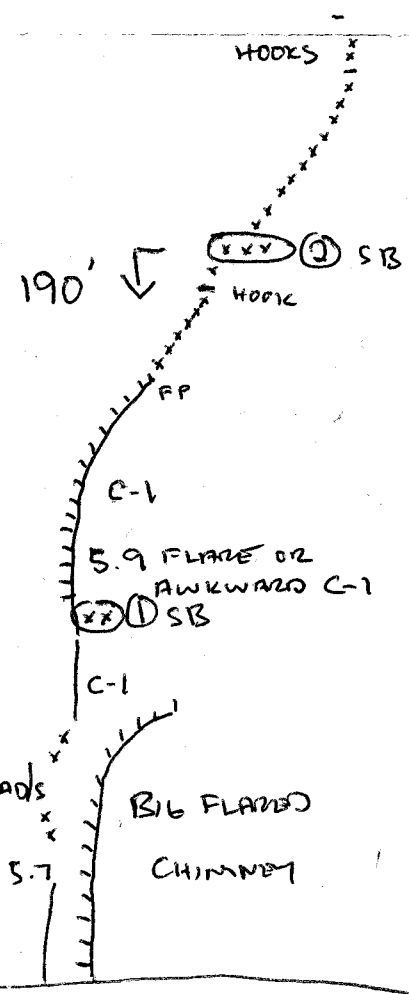 HOOKS
xxx ② SB
190'
HOOK
FP
C-1
5.9 FLARE OR
AWKWARD C-1
xx ① SB
C-1
BIG FLARED
5.7
CHIMNEY